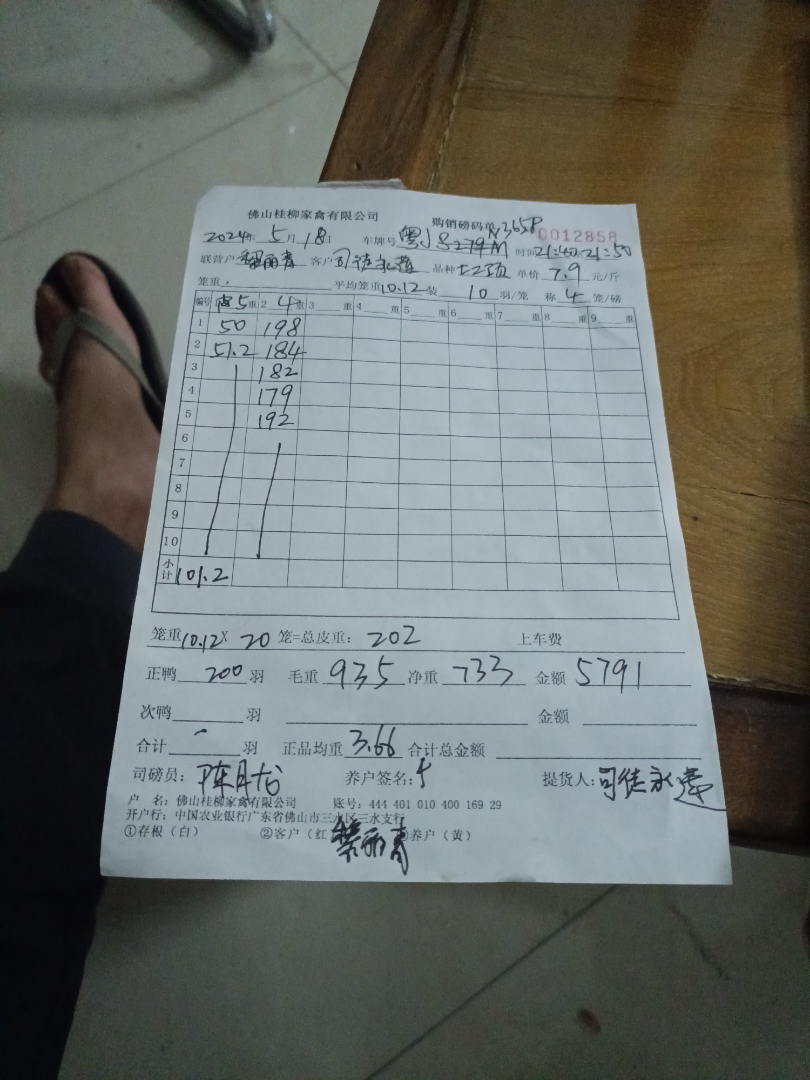 佛山桂柳家禽有限公司 购销磅码单 №3658 0012858
2024年 5月18日 车牌号 粤J 时间 21:40 21:50
联营户 黎丽青 客户 司徒永 品种 单价 7.9 元/斤
笼重, 平均笼重10.12 装 10 羽/笼 称 4 笼/磅
编号 1 5 重 2 4 重 3 重 4 重 5 重 6 重 7 重 8 重 9 重
1 50 198
2 51.2 184
3 182
4 179
5 192
6
7
8
9
10
小计 101.2
笼重10.12× 20 笼=总皮重: 202 上车费
正鸭 200 羽 毛重 935 净重 733 金额 5791
次鸭 羽 金额
合计 - 羽 正品均重 3.66 合计总金额
司磅员: 陈月龙 养户签名: 提货人: 司徒永
户 名: 佛山桂柳家禽有限公司 账号: 444 401 010 400 169 29
开户行: 中国农业银行广东省佛山市三水区三水支行
①存根(白) ②客户(红 养户(黄)
黎丽青